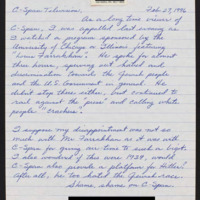 C-Span Television Feb. 27, 1996
As a long time viewer of
C-Span, I was appalled last evening as
I watched a program sponsored by the
University of Chicago or Illinois featuring
"Louis Farrakhan". He spoke for almost
three hours, spewing out hatred and
discrimination towards the Jewish people
and the U.S. Government in general. He
didn't stop there either, but continued to
rail against the "jews" and calling white
people "crackers".
I suppose my disappointment was not so
much with Mr. Farrakhan as it was with
C-Span for giving air time to such a bigot.
I also wondered if this were 1939, would
C-Span also provide a platform for Hitler?
After all, he too hated the Jewish race.
Shame, shame on C-Span.